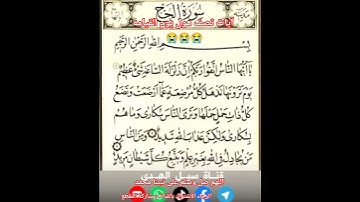 سُورَةُ الحَجّ
آيات تصف هول يوم القيامة
بِسْمِ اللَّهِ الرَّحْمَٰنِ الرَّحِيمِ
يَا أَيُّهَا النَّاسُ اتَّقُوا رَبَّكُمْ إِنَّ زَلْزَلَةَ السَّاعَةِ شَيْءٌ عَظِيمٌ
يَوْمَ تَرَوْنَهَا تَذْهَلُ كُلُّ مُرْضِعَةٍ عَمَّا أَرْضَعَتْ وَتَضَعُ
كُلُّ ذَاتِ حَمْلٍ حَمْلَهَا وَتَرَى النَّاسَ سُكَارَى وَمَا هُم
بِسُكَارَى وَلَٰكِنَّ عَذَابَ اللَّهِ شَدِيدٌ وَمِنَ النَّاسِ
مَن يُجَادِلُ فِي اللَّهِ بِغَيْرِ عِلْمٍ وَيَتَّبِعُ كُلَّ شَيْطَانٍ مَّرِيدٍ
قناة سبل الهدى
اللهم صل وسلم على نبينا محمد